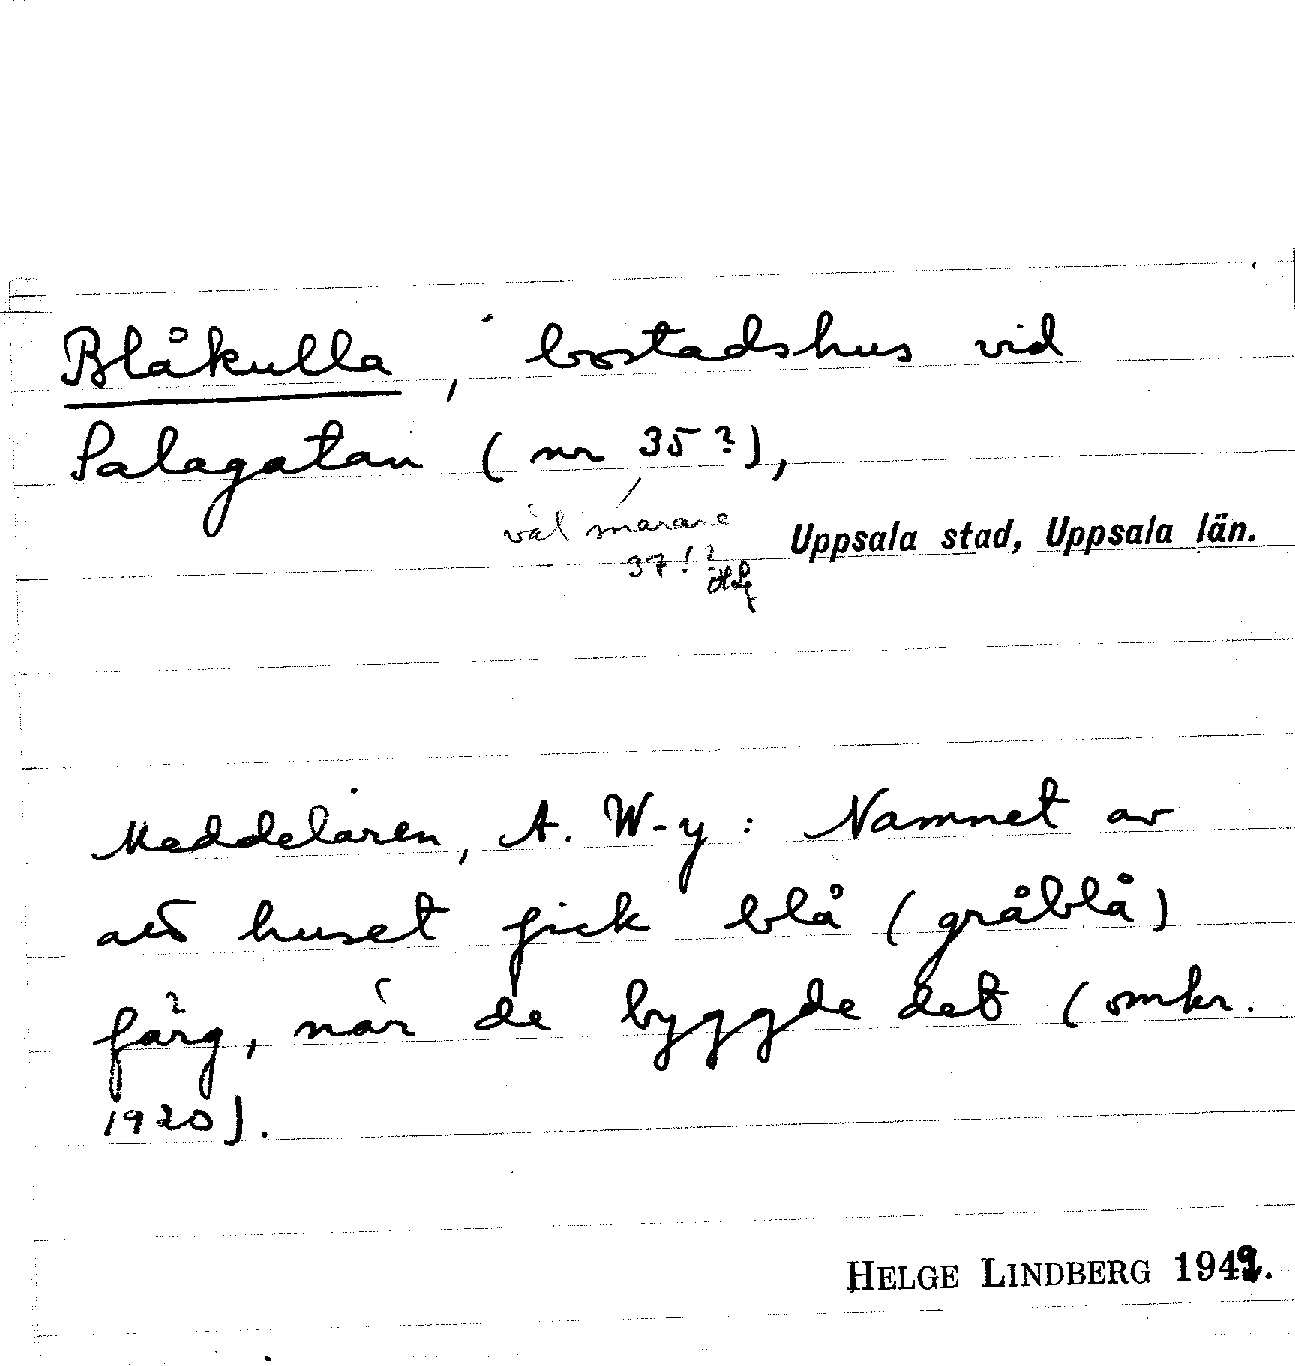 Blåkulla, bostadshus vid
Salagatan (nr 35?),
väl snarare
37!?
Uppsala stad, Uppsala län.
Meddelaren, A. W-y: Namnet av
att huset fick blå (gråblå)
färg, när de byggde det (omkr.
1920).
HELGE LINDBERG 1949.